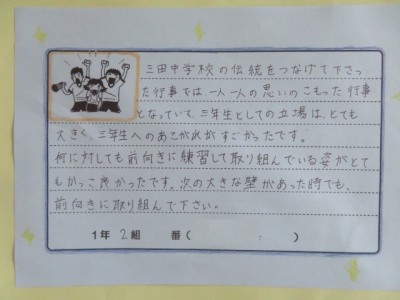 三田中学校の伝統をつなげて下さっ
た行事では、一人一人の思いのこもった行事
となっていて、三年生としての立場は、とても
大きく、三年生へのあこがれがすごかったです。
何に対しても前向きに練習して取り組んでいる姿がとて
もかっこ良かったです。次の大きな壁があった時でも、
前向きに取り組んで下さい。
1年 2組 番( )